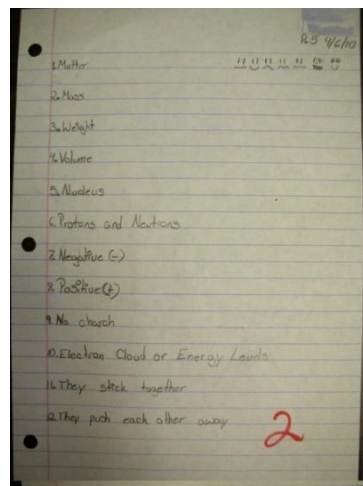 Pd.5 4/6/10
1. Matter
2. Mass
3. Weight
4. Volume
5. Nucleus
6. Protons and Neutrons
7. Negative (-)
8. Positive (+)
9. No charch
10. Electron Cloud or Energy Levels
11. They stick together
12. They puch each other away
2